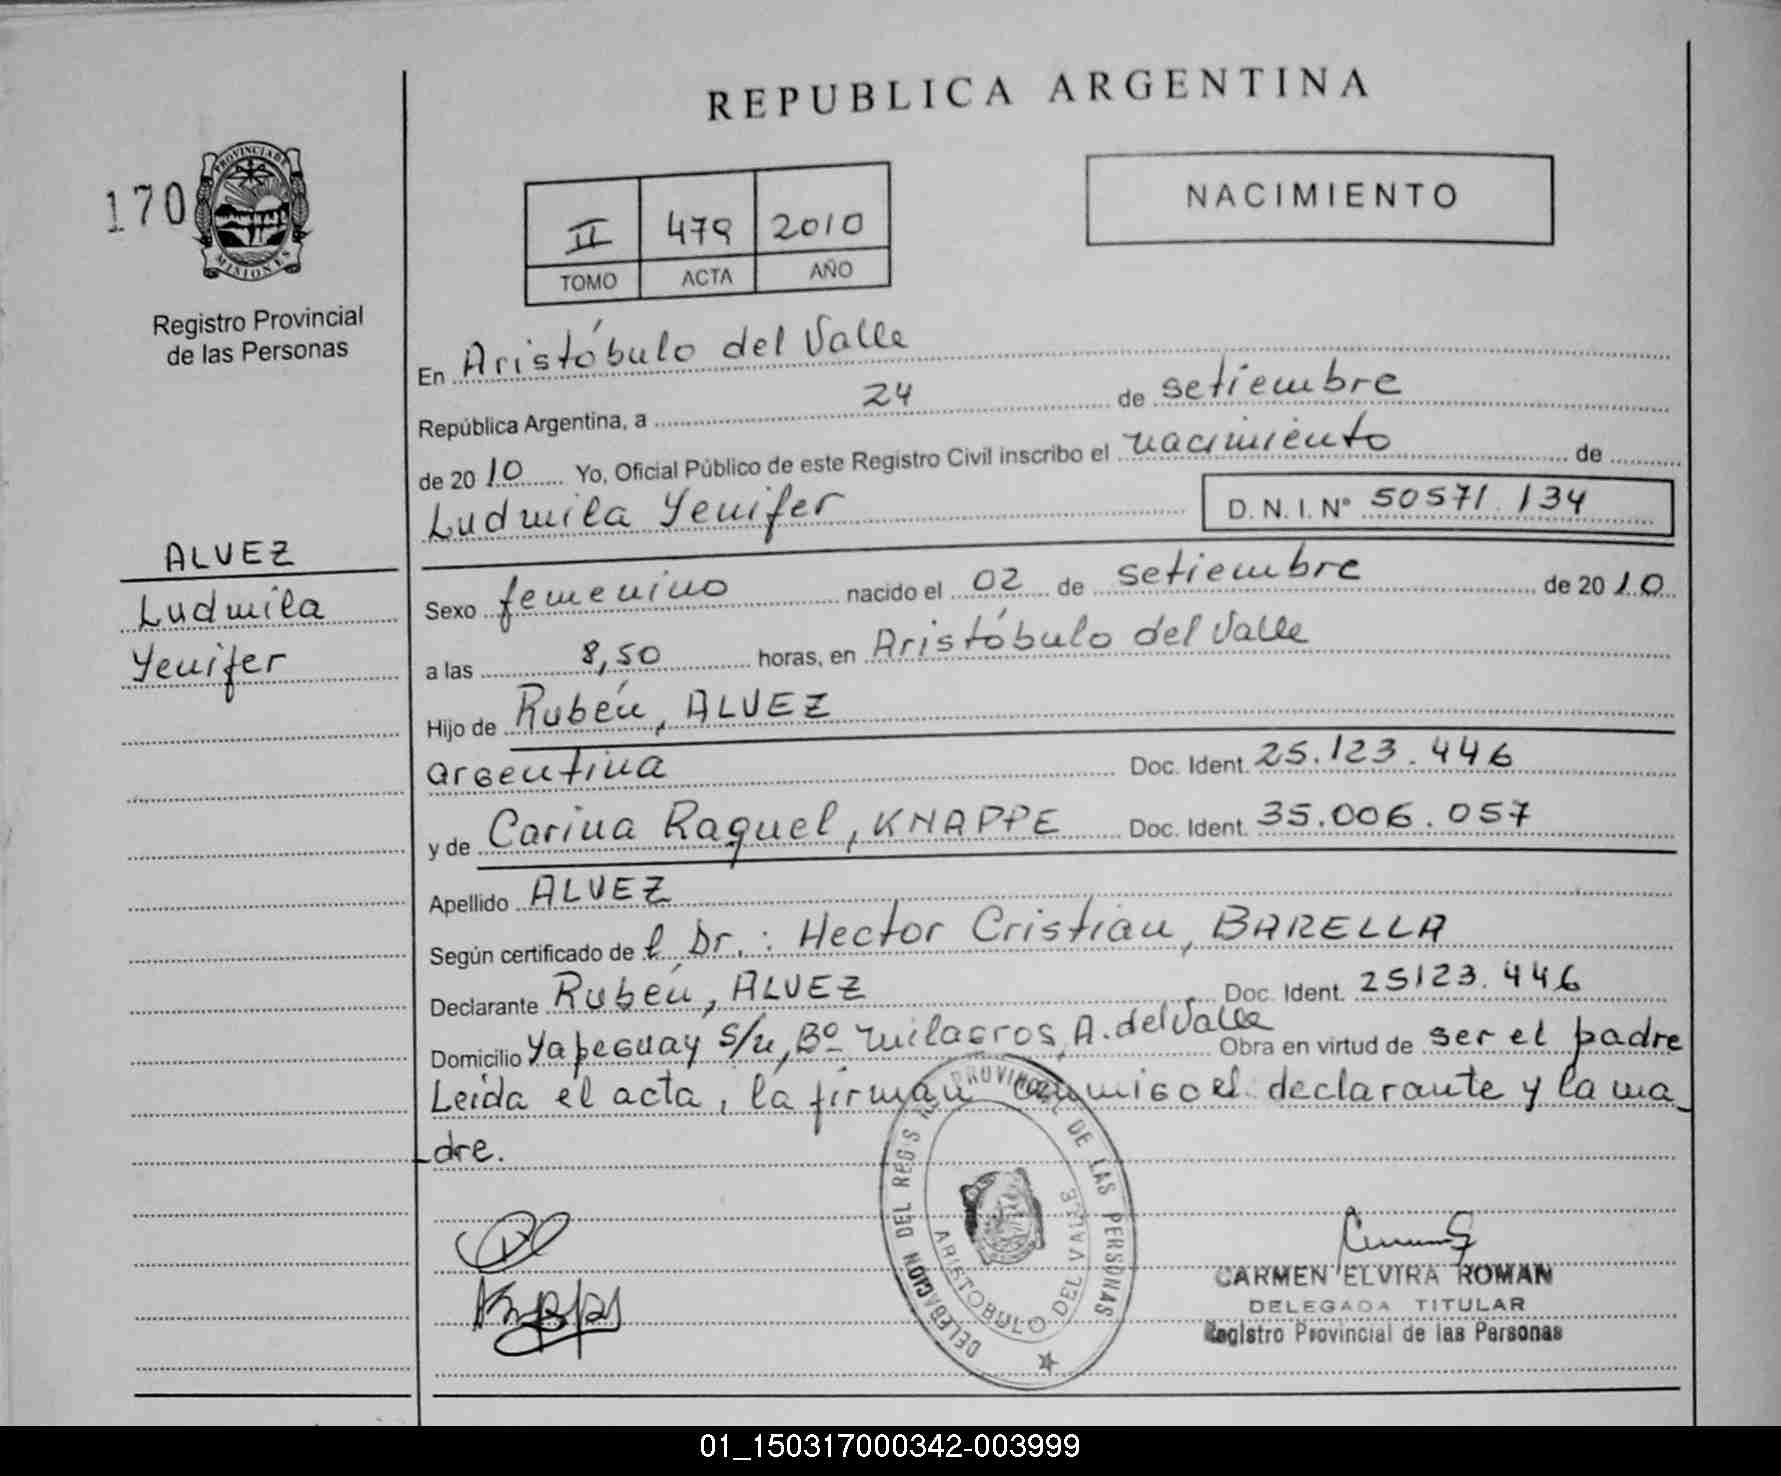 REPUBLICA ARGENTINA
170
PROVINCIA DE
MISIONES
Registro Provincial
de las Personas
II 479 2010
TOMO ACTA AÑO
NACIMIENTO
En Aristóbulo del Valle
República Argentina, a 24 de setiembre
de 2010 Yo, Oficial Público de este Registro Civil inscribo el nacimiento de
Ludmila Yenifer D.N.I. Nº 50571.134
ALVEZ
Ludmila
Yenifer
Sexo femenino nacido el 02 de setiembre de 2010
a las 8,50 horas, en Aristóbulo del Valle
Hijo de Rubén, ALVEZ
argentina Doc. Ident. 25.123.446
y de Carina Raquel, KNAPPE Doc. Ident. 35.006.057
Apellido ALVEZ
Según certificado de l Dr.: Hector Cristian, BARELLA
Declarante Rubén, ALVEZ Doc. Ident. 25123.446
Domicilio Yapeguay S/n, Bº Milagros, A. del Valle Obra en virtud de ser el padre
Leída el acta, la firman conmigo el declarante y la ma_
dre.
DELEGACION DEL REGIS PROVINCIAL DE LAS PERSONAS
ARISTOBULO DEL VALLE
CARMEN ELVIRA ROMAN
DELEGADA TITULAR
Registro Provincial de las Personas
01_150317000342-003999